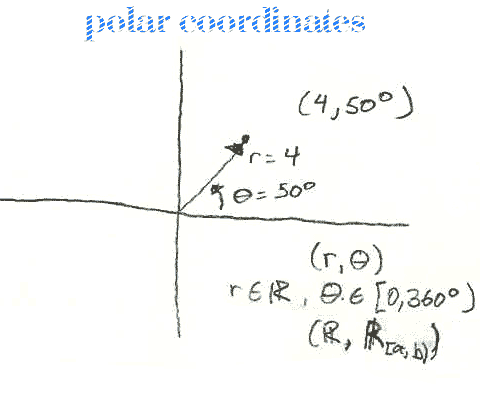 polar coordinates
(4,50°)
r=4
θ=50°
(r,θ)
r∈ℝ, θ∈[0,360°)
(ℝ, ℝ[a,b))